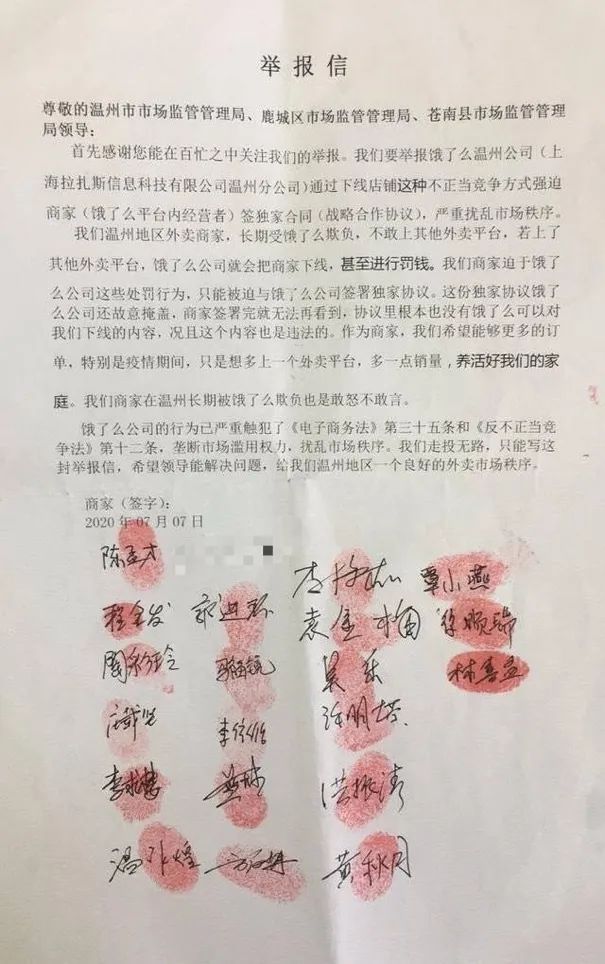 举报信
尊敬的温州市市场监管管理局、鹿城区市场监管管理局、苍南县市场监管管理
局领导:
首先感谢您能在百忙之中关注我们的举报。我们要举报饿了么温州公司（上
海拉扎斯信息科技有限公司温州分公司)通过下线店铺这种不正当竞争方式强迫
商家（饿了么平台内经营者）签独家合同（战略合作协议），严重扰乱市场秩序。
我们温州地区外卖商家，长期受饿了么欺负，不敢上其他外卖平台，若上了
其他外卖平台，饿了么公司就会把商家下线，甚至进行罚钱。我们商家迫于饿了
么公司这些处罚行为，只能被迫与饿了么公司签署独家协议。这份独家协议饿了
么公司还故意掩盖，商家签署完就无法再看到，协议里根本也没有饿了么可以对
我们下线的内容，况且这个内容也是违法的。作为商家，我们希望能够更多的订
单，特别是疫情期间，只是想多上一个外卖平台，多一点销量，养活好我们的家
庭。我们商家在温州长期被饿了么欺负也是敢怒不敢言。
饿了么公司的行为已严重触犯了《电子商务法》第三十五条和《反不正当竞
争法》第十二条，垄断市场滥用权力，扰乱市场秩序。我们走投无路，只能写这
封举报信，希望领导能解决问题，给我们温州地区一个良好的外卖市场秩序。
商家（签字）:
2020 年 07 月 07 日
覃小燕
袁金梅
林喜孟
许明塔
洪振涛
黄秋月